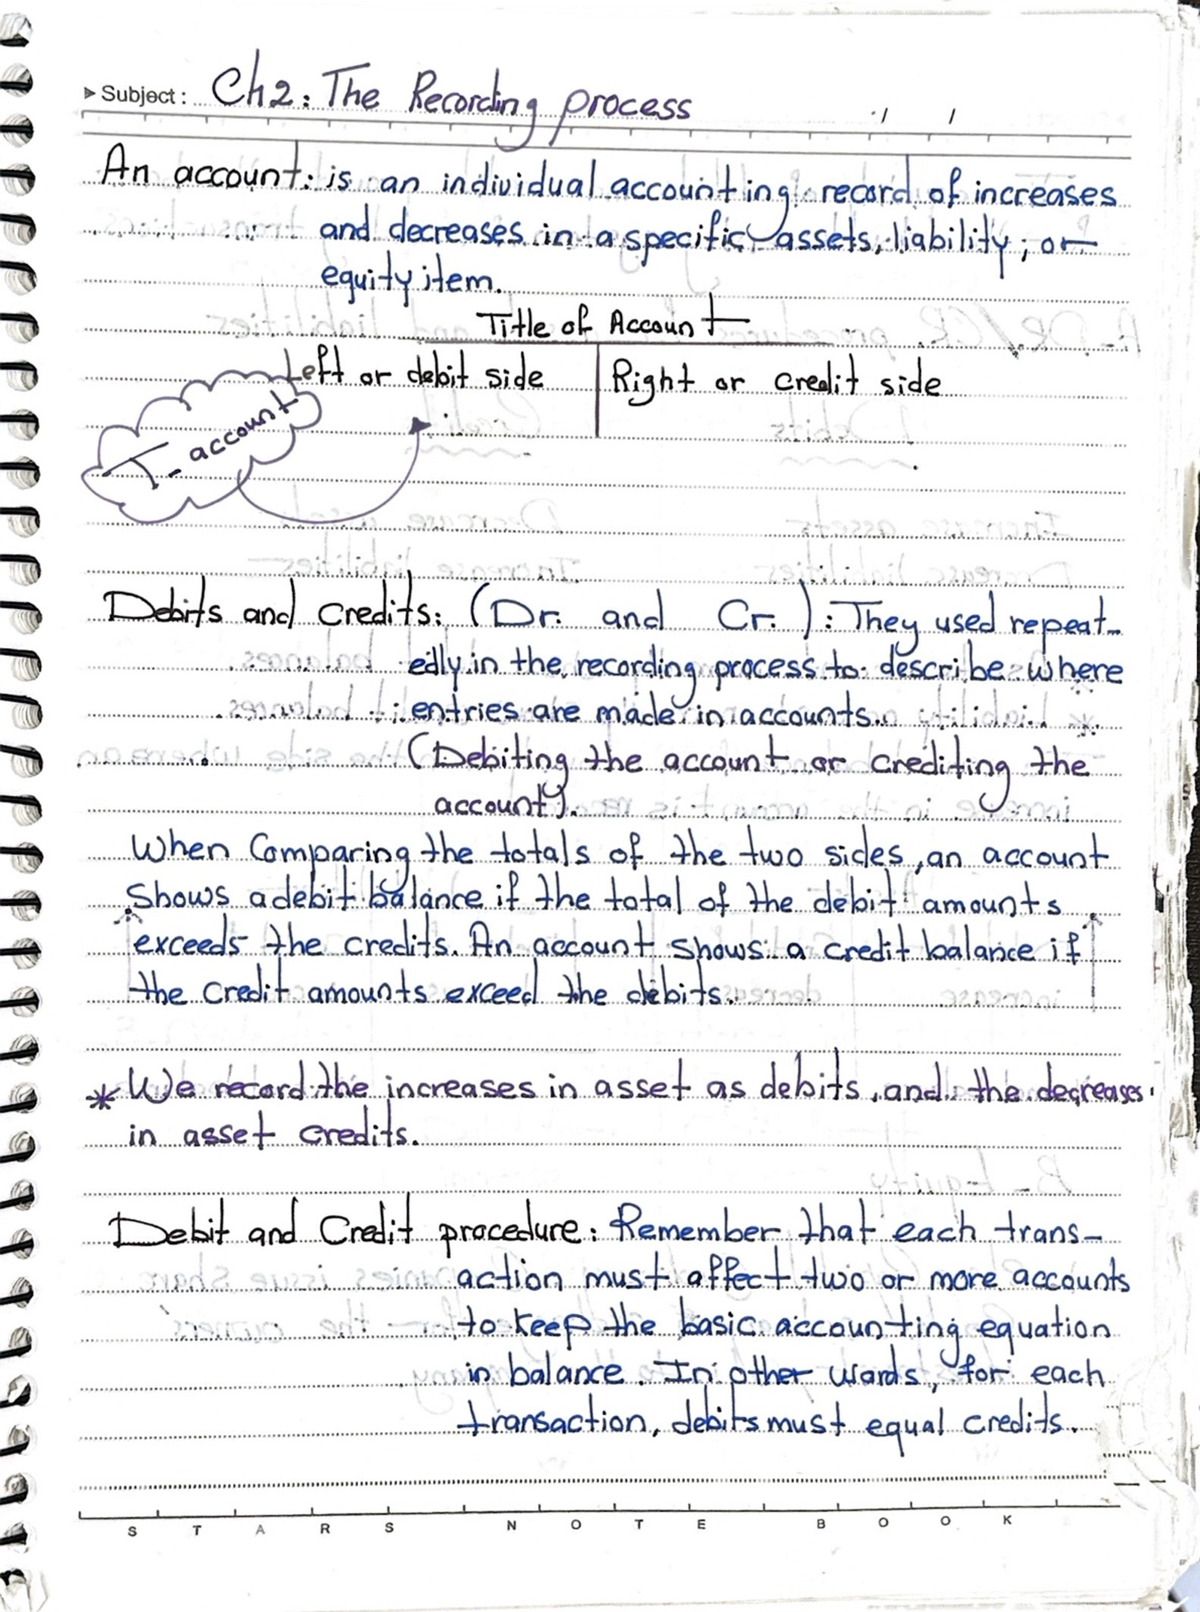 ▸ Subject: Ch2: The Recording process / /
An account: is an individual accounting record of increases
and decreases in a specific assets, liability, or
equity item.
Title of Account
Left or debit side Right or credit side
T-account
Debits and credits: (Dr. and Cr.): They used repeat-
edly in the recording process to describe where
entries are made in accounts.
(Debiting the account or crediting the
account).
When Comparing the totals of the two sides, an account
Shows a debit balance if the total of the debit amounts
exceeds the credits. An account shows a credit balance if
the credit amounts exceed the debits.
* We record the increases in asset as debits, and the decreases
in asset credits.
Debit and Credit procedure: Remember that each trans-
action must affect two or more accounts
to keep the basic accounting equation
in balance. In other words, for each
transaction, debits must equal credits.
STARS NOTE BOOK